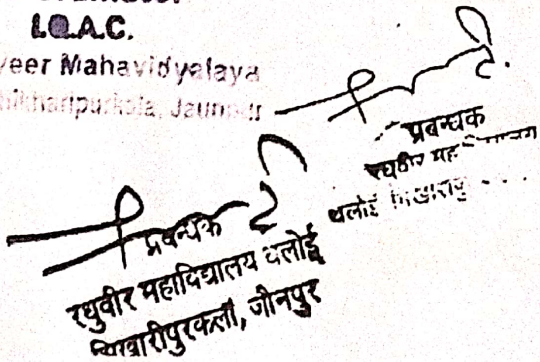 I.Q.A.C.
veer Mahavidyalaya
Bhikharipurkala, Jaunpur
प्रबन्धक
रघुवीर मह
थलोई
प्रबन्धक
रघुवीर महाविद्यालय थलोई
भिखारीपुरकलां, जौनपुर